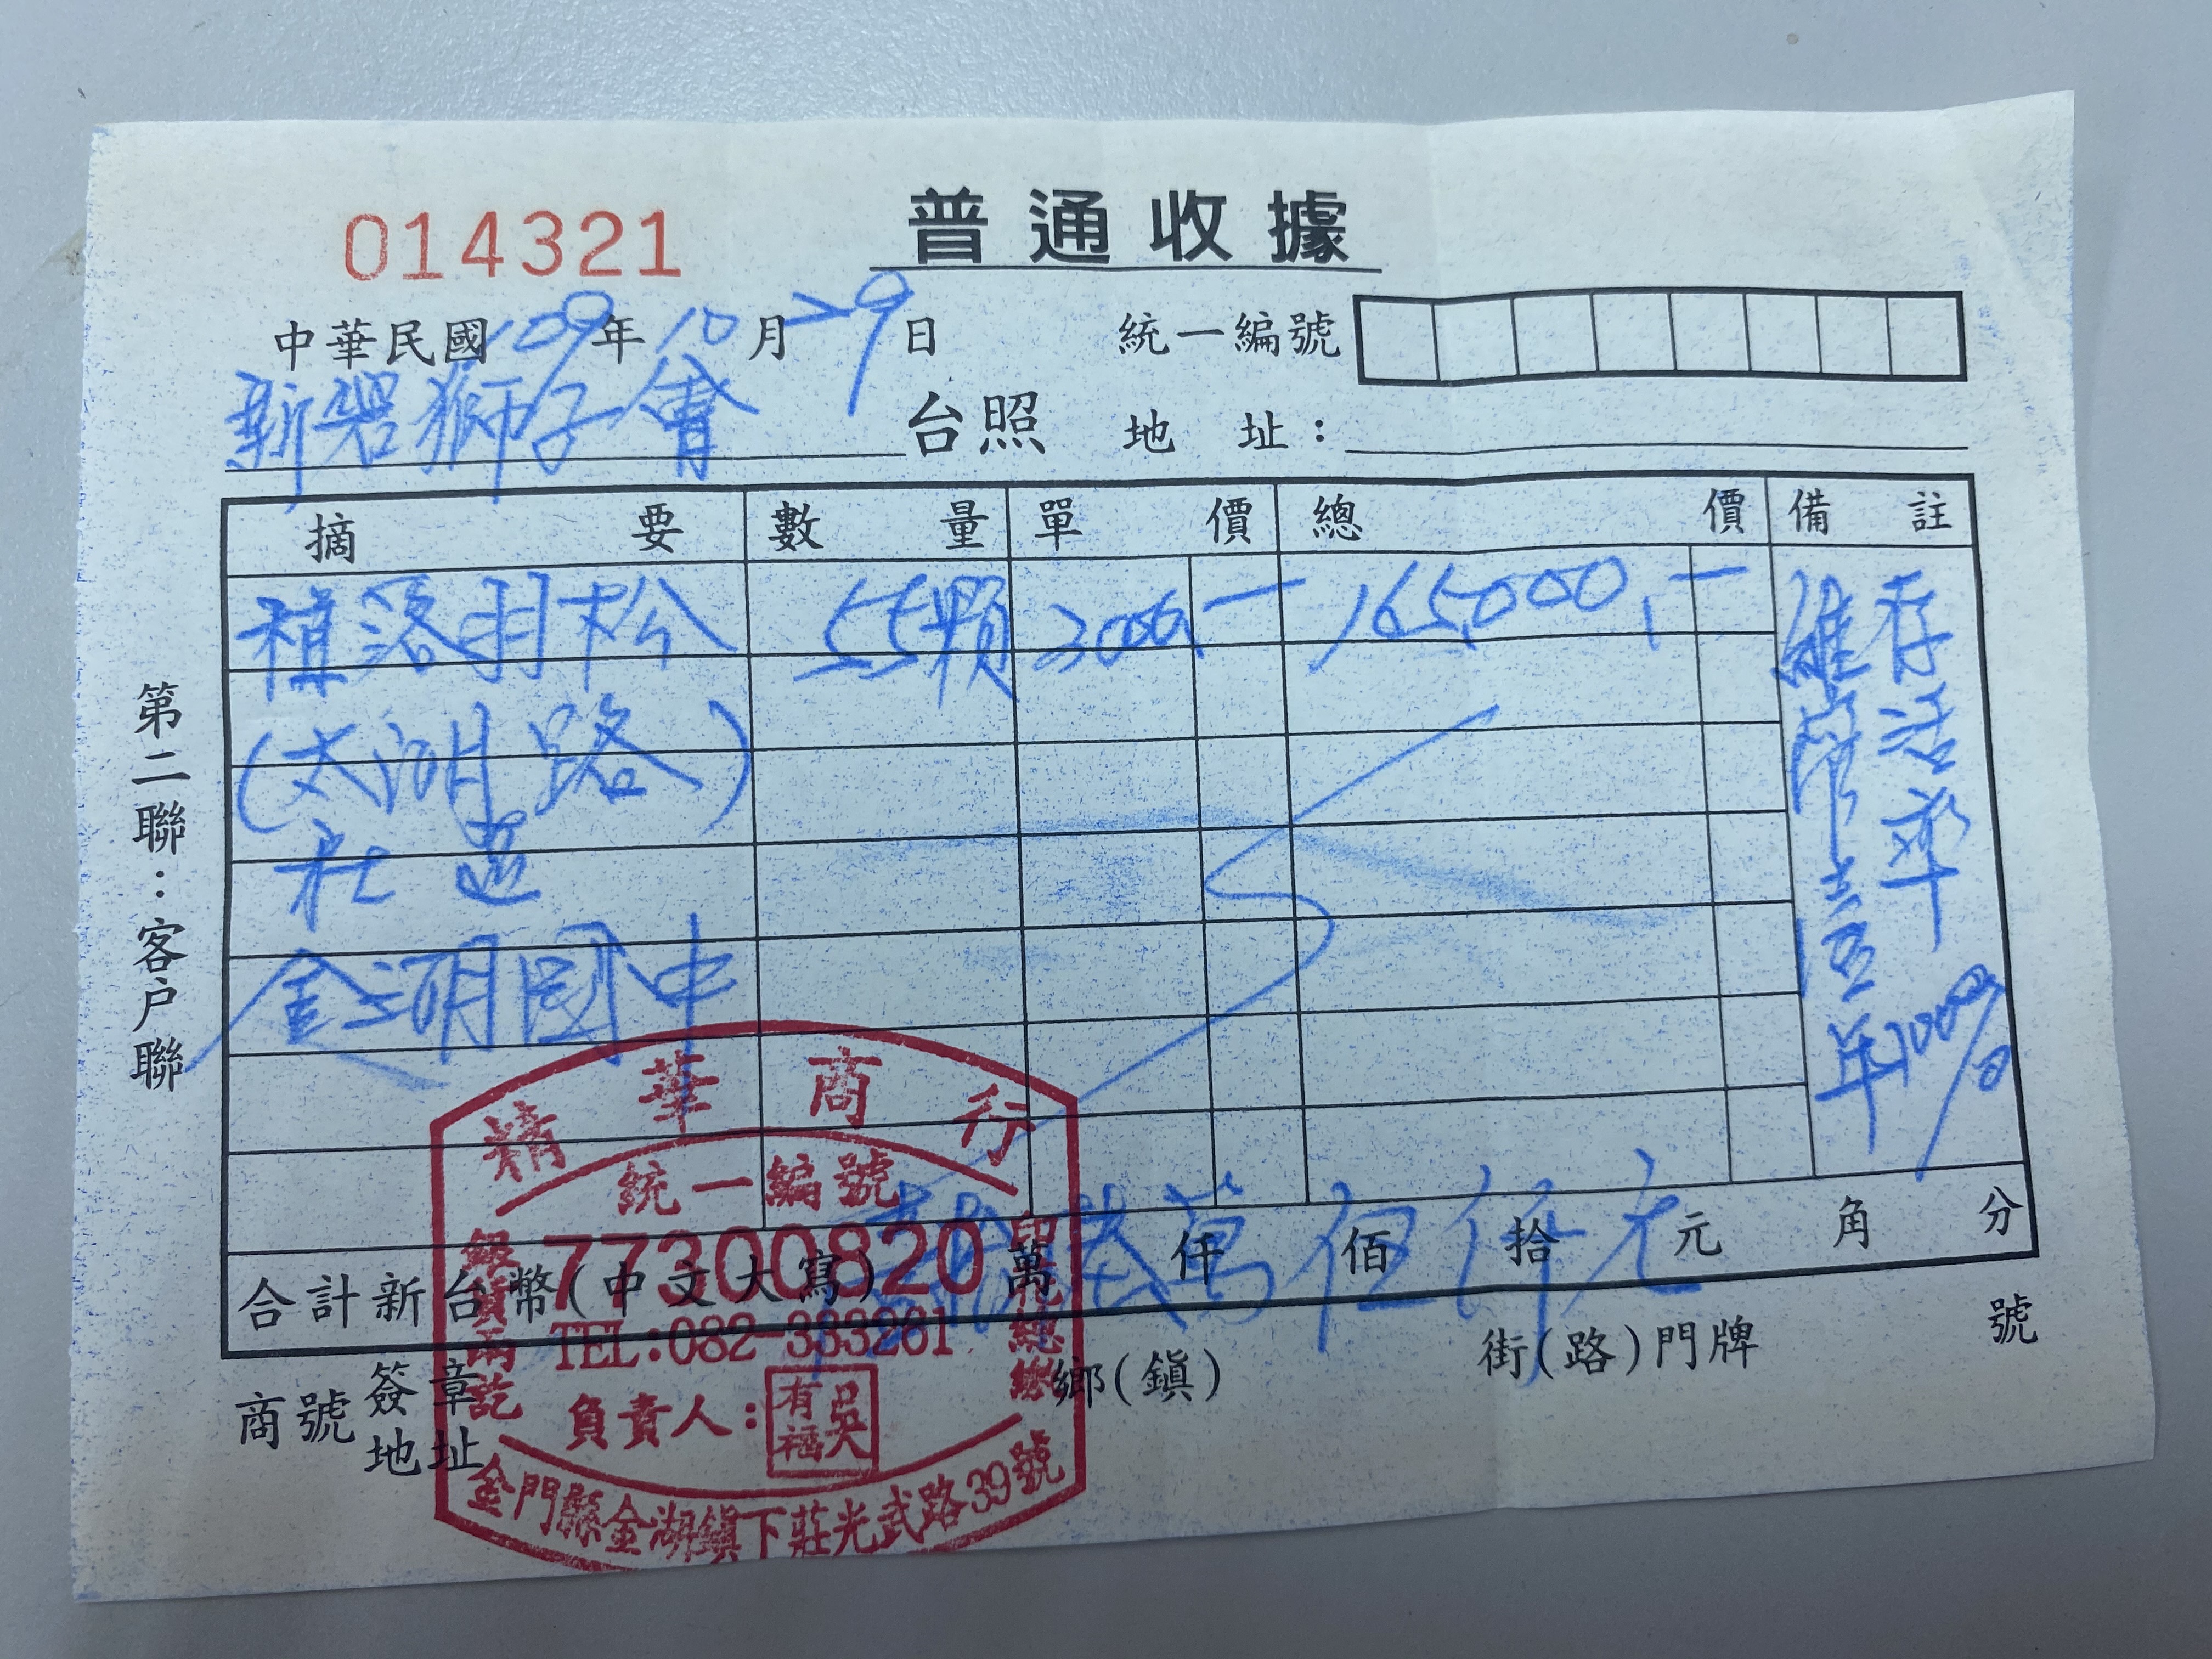 014321
普通收據
中華民國109年10月29日 統一編號
新碧獅子會 台照 地址：
摘要 數量 單價 總價 備註
植落羽松 55顆 3000,一 165,000,一
(太湖路)
社區
金湖國中
存活率100%
維管壹年
第二聯：客戶聯
合計新台幣(中文大寫) 萬 仟 佰 拾 元 角 分
壹拾陸萬伍仟元
商號簽章地址 鄉(鎮) 街(路)門牌 號
精華商行
統一編號
77300820
TEL:082-333261
負責人：吳有福
銀貨兩訖
金門縣金湖鎮下莊光武路39號